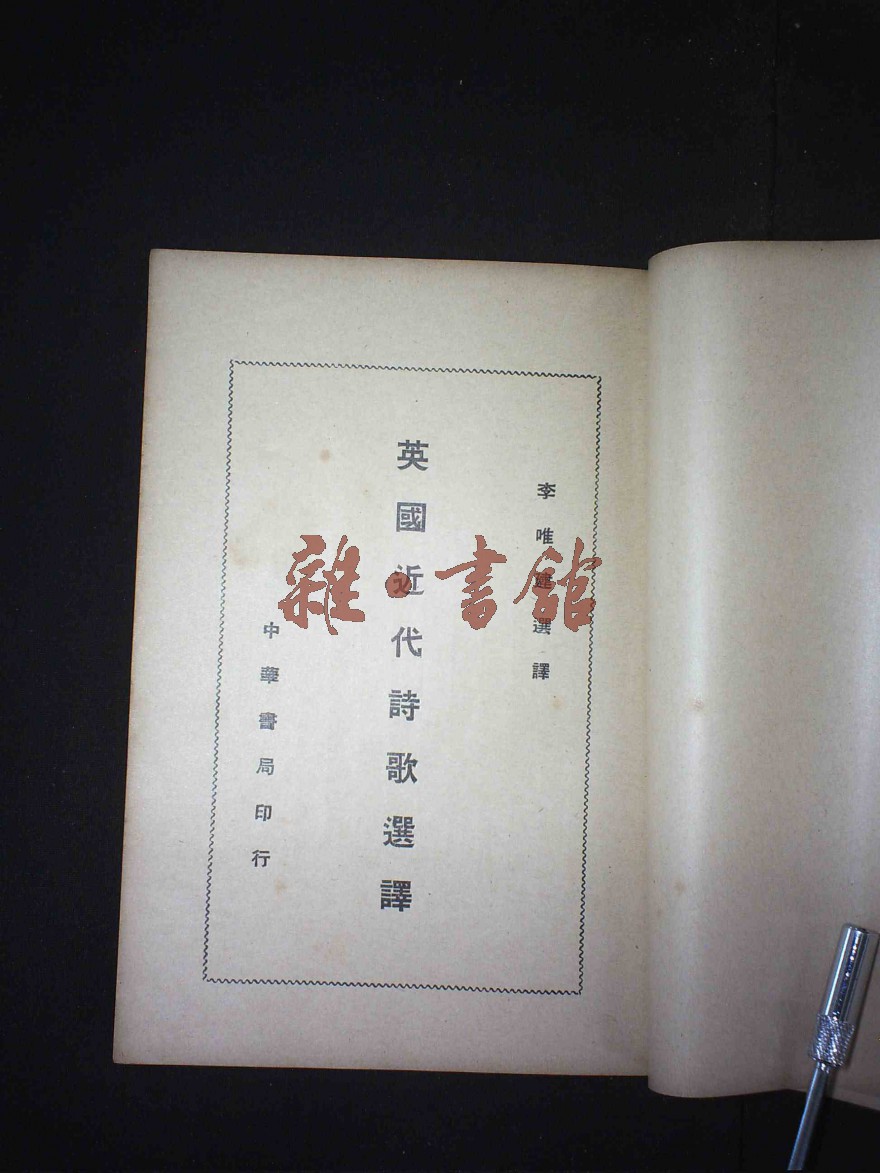 李唯建選譯
英國近代詩歌選譯
中華書局印行
雜·書館